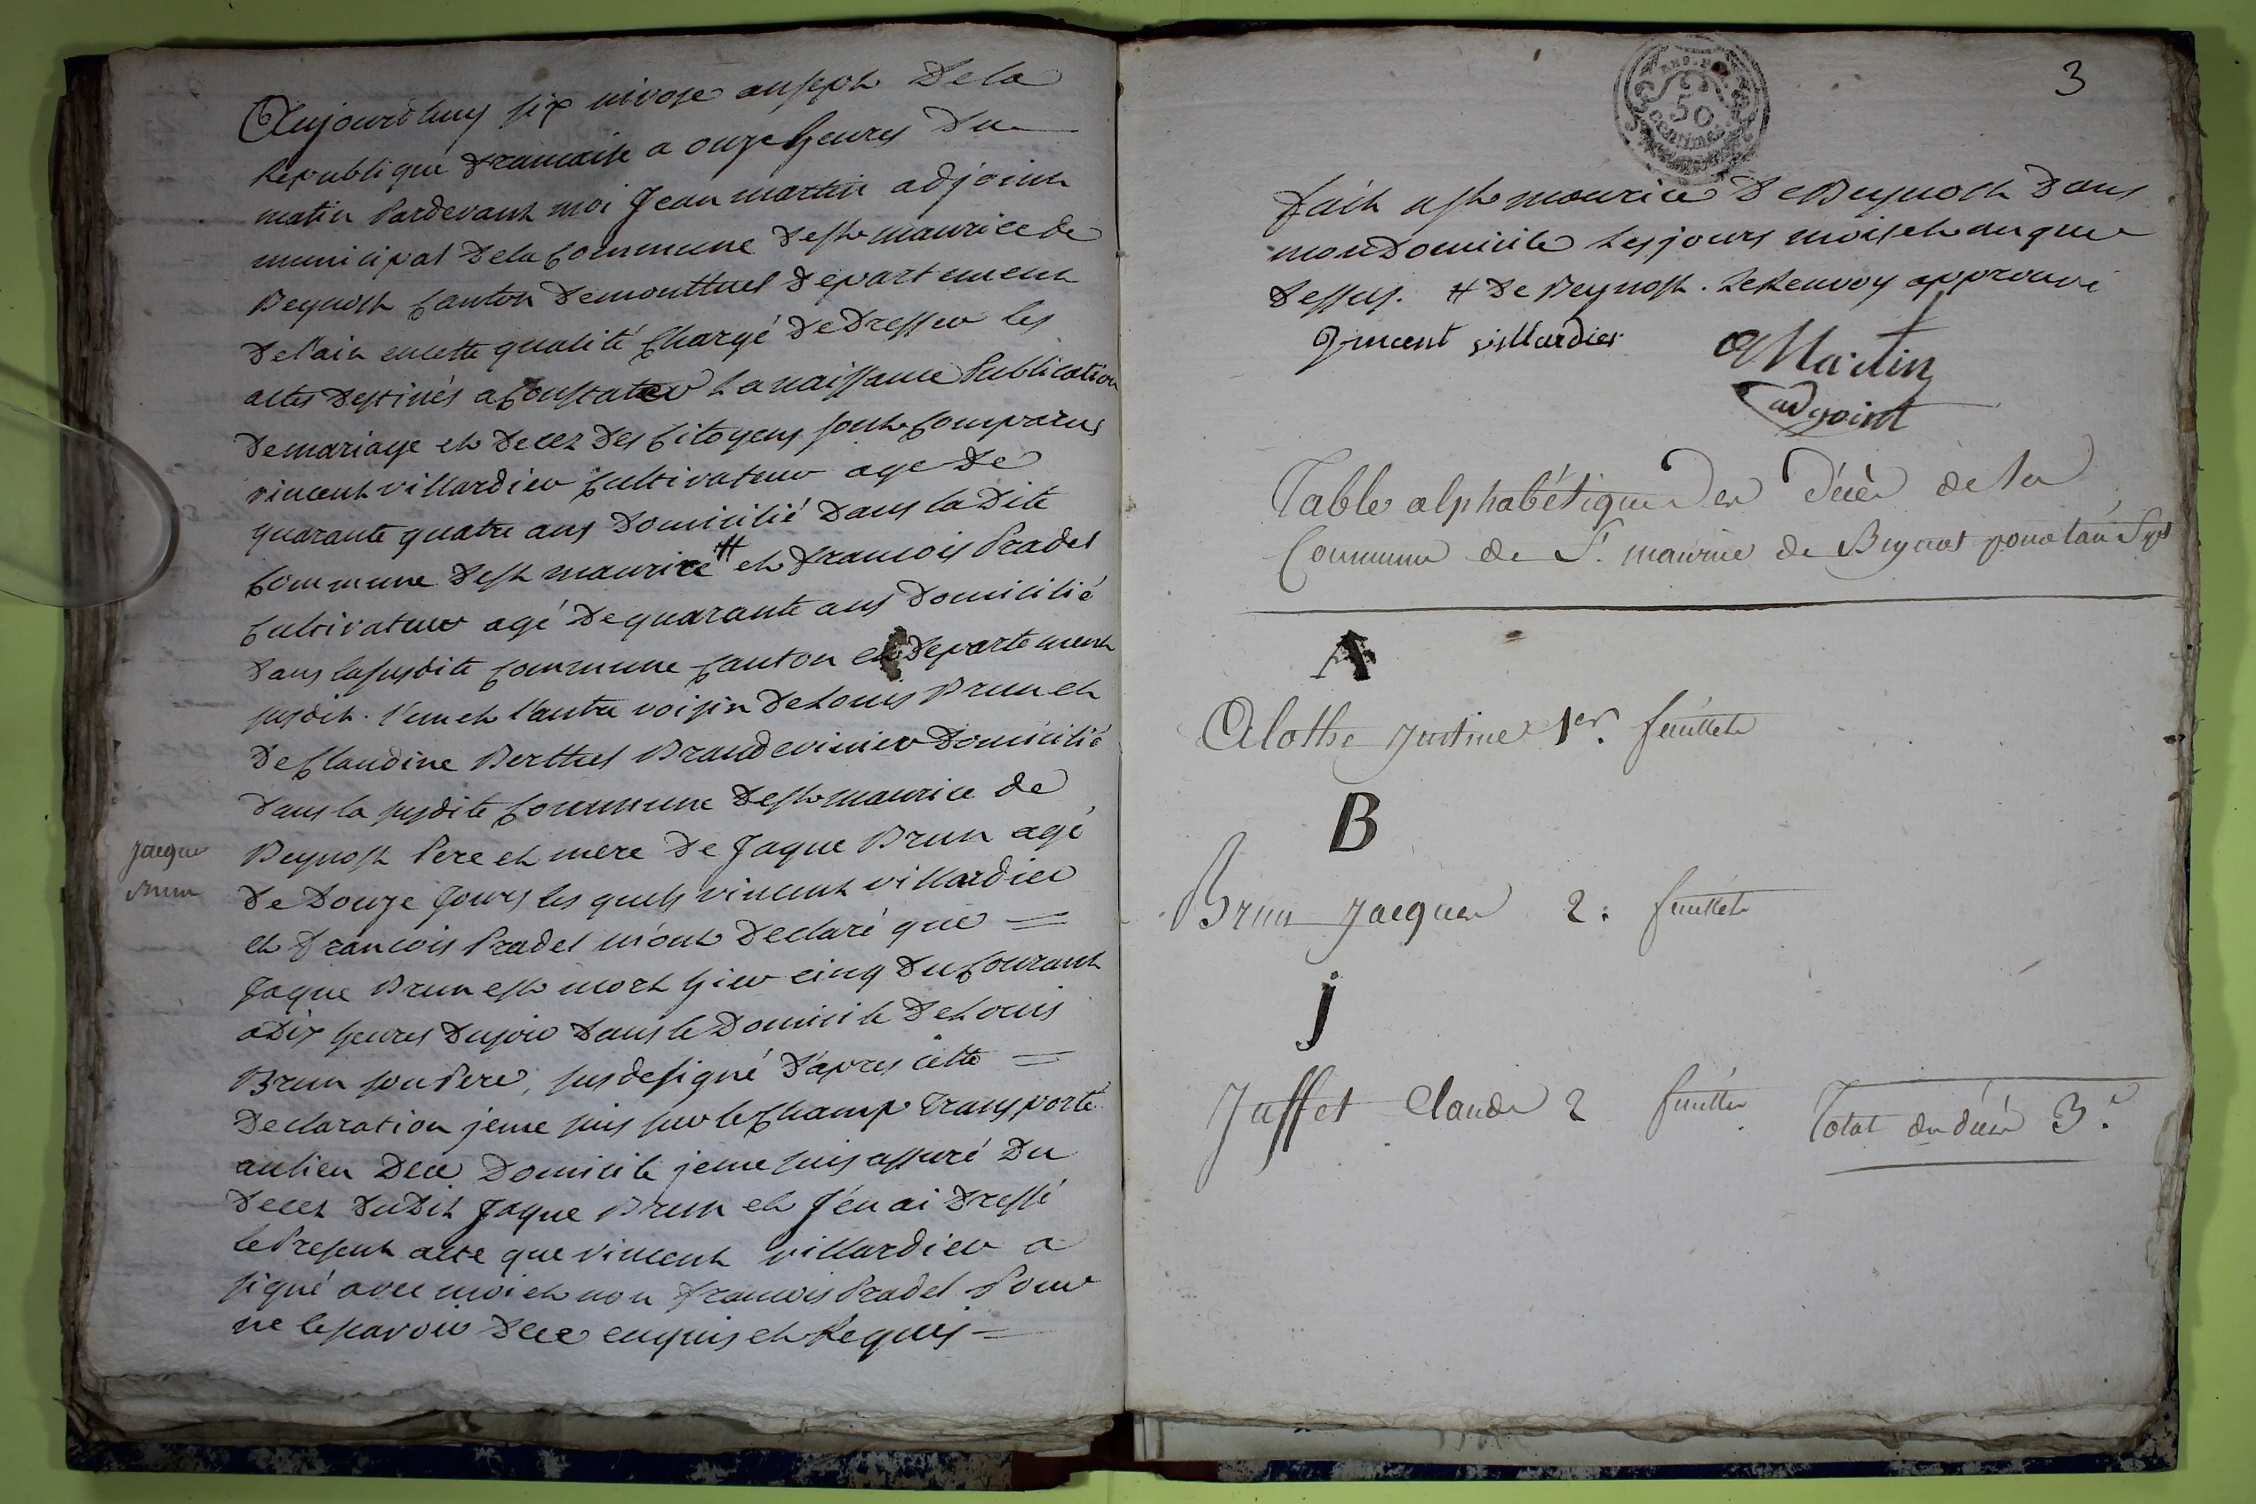 Aujourdhuy six nivose ansepth De la
Republique francaise a onze heures Du
matin Pardevant moi Jean martin adjoint
municipal Dela Commune Dest maurice de
Beynost Canton Demontluel Departement
De l'ain encette qualité Chargé De Dresser les
actes Destinés a Constater La naissance Publication
Demariage et Decez Des Citoyens sont Comparus
vincent villardier Cultivateur age De
quarante quatre ans Domicilié Dans la Dite
Commune Dest maurice # et francois Pradel
Cultivateur agé De quarante ans Domicilié
Dans lasusdite Commune Canton et Departement
susdit. l'un et l'autre voisin De Louis Brun et
De Claudine Berthet Brandevinier Domicilié
Dans la susdite Commune Dest maurice de
Beynost Pere et mere De Jaque Brun agé
De Douze Jours les quels vincent villardier
et francois Pradel m'ont Declaré que =
Jaque Brun est mort hier cinq Du Courant
a Dix heures Dusoir Dans le Domicile De Louis
Brun son Pere, susdesigné D'apres cette =
Declaration jeme suis sur le Champ Transporté
aulieu Dece Domicile jeme suis assuré Du
Decez DuDit Jaque Brun et J'en ai Dressé
le Present acte que vincent villardier a
signé avec moi et non francois Pradel Pour
ne lescavoir Dece enquis et Requis =
Jacque
Brun
3
50
centimes
fait a st maurice De Beynost Dans
mon Domicile Les jours mois et an que
Dessus. # De Beynost. Le Renvoy approuvé
vincent villardier
Martin
adjoint
Table alphabétique des décès de la
Commune de St. maurice de Beynost pour l'an Sept
A
Alothe Justine 1er. feuillet
B
Brun Jacques 2. feuillet
j
Juffet Claude 2 feuillet
Total des décès 3.